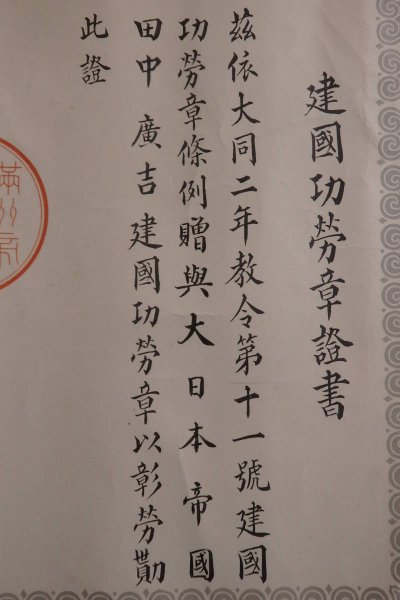 建國功勞章證書
茲依大同二年教令第十一號建國
功勞章條例贈與大日本帝國
田中廣吉建國功勞章以彰勞勩
此證